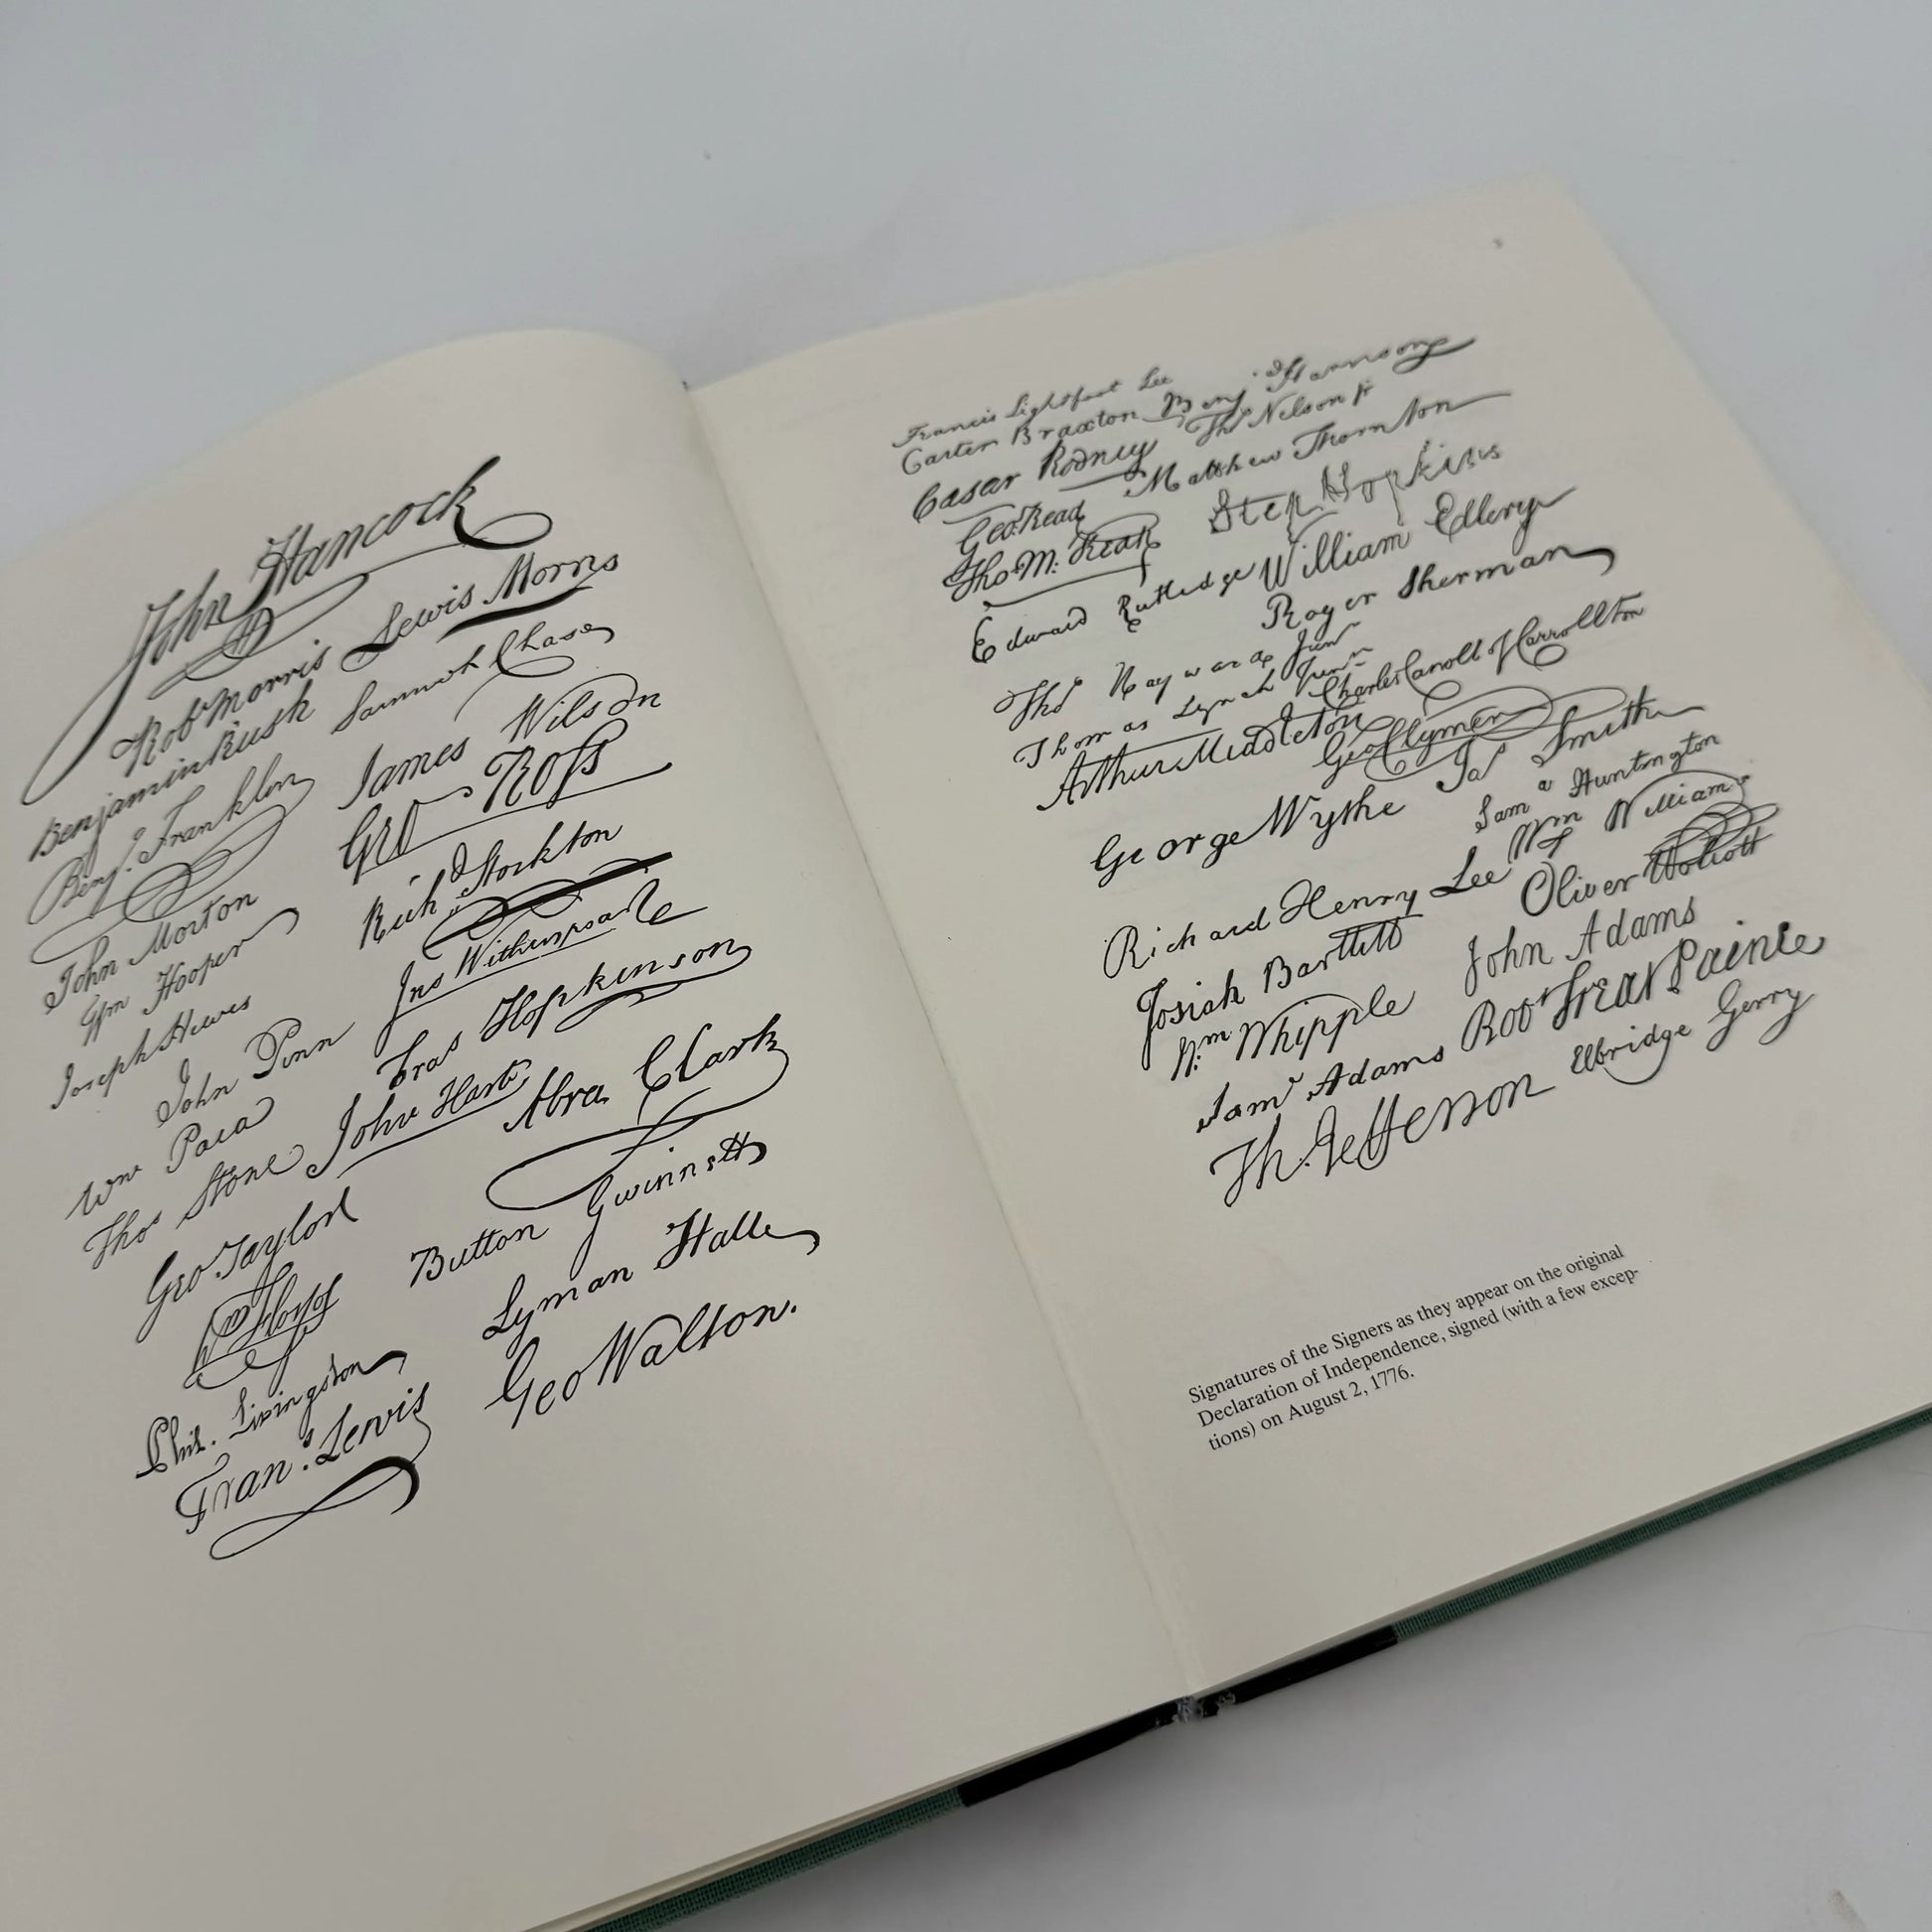 John Hancock
Robt Morris Lewis Morris
Benjamin Rush Samuel Chase
Benj. Franklin James Wilson
Geo Ross
John Morton Richd Stockton
Wm Hooper Jno Witherspoon
Joseph Hewes Fras Hopkinson
John Penn John Hart Abra Clark
Wm Paca
Thos Stone Button Gwinnett
Geo. Taylor Lyman Hall
Wm Floyd Geo Walton.
Phil. Livingston
Frans. Lewis
Francis Lightfoot Lee
Carter Braxton Benj Harrison
Casar Rodney Thos Nelson jr
Geo Read Matthew Thornton
Tho M: Kean Step Hopkins
Edward Rutledge William Ellery
Roger Sherman
Thos Hayward Junr
Thomas Lynch Junr Charles Carroll of Carrollton
Arthur Middleton Geo Clymer
George Wythe Jas Smith
Saml Huntington
Richard Henry Lee Wm Williams
Josiah Bartlett Oliver Wolcott
Wm Whipple John Adams
Saml Adams Robt Treat Paine
Th. Jefferson Elbridge Gerry
Signatures of the Signers as they appear on the original
Declaration of Independence, signed (with a few excep-
tions) on August 2, 1776.